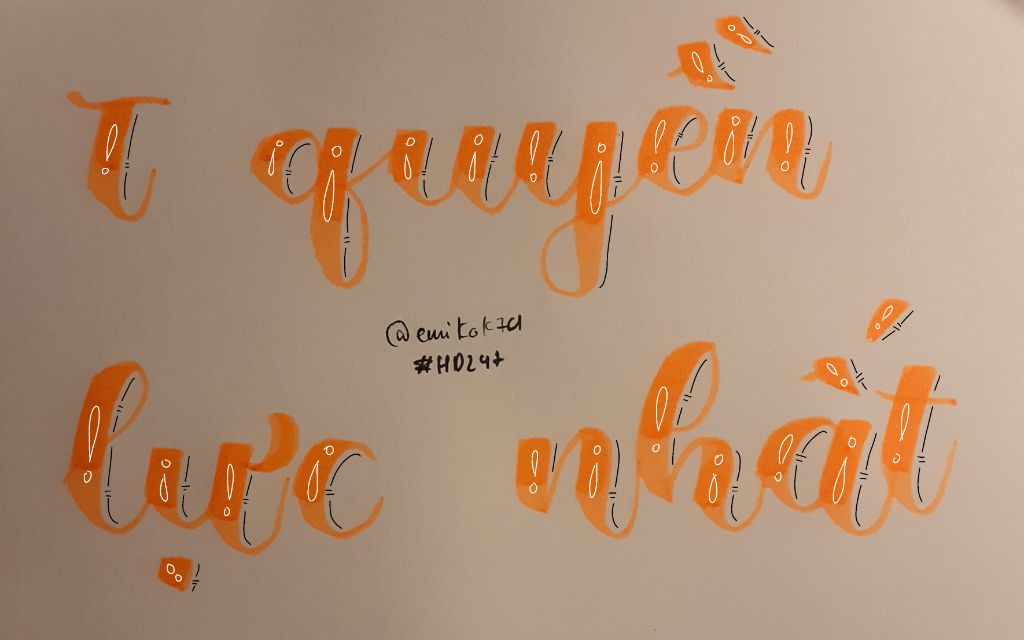 T quyền
@emikok7d
#HD247
lực nhất